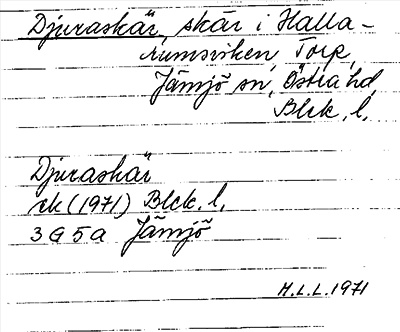 Djuraskär, skär i Halla-
rumsviken, Torp,
Jämjö sn, Östra hd,
Blek. l.
Djuraskär
ek (1971) Blek. l.
3 G 5 a Jämjö
H.L.L. 1971